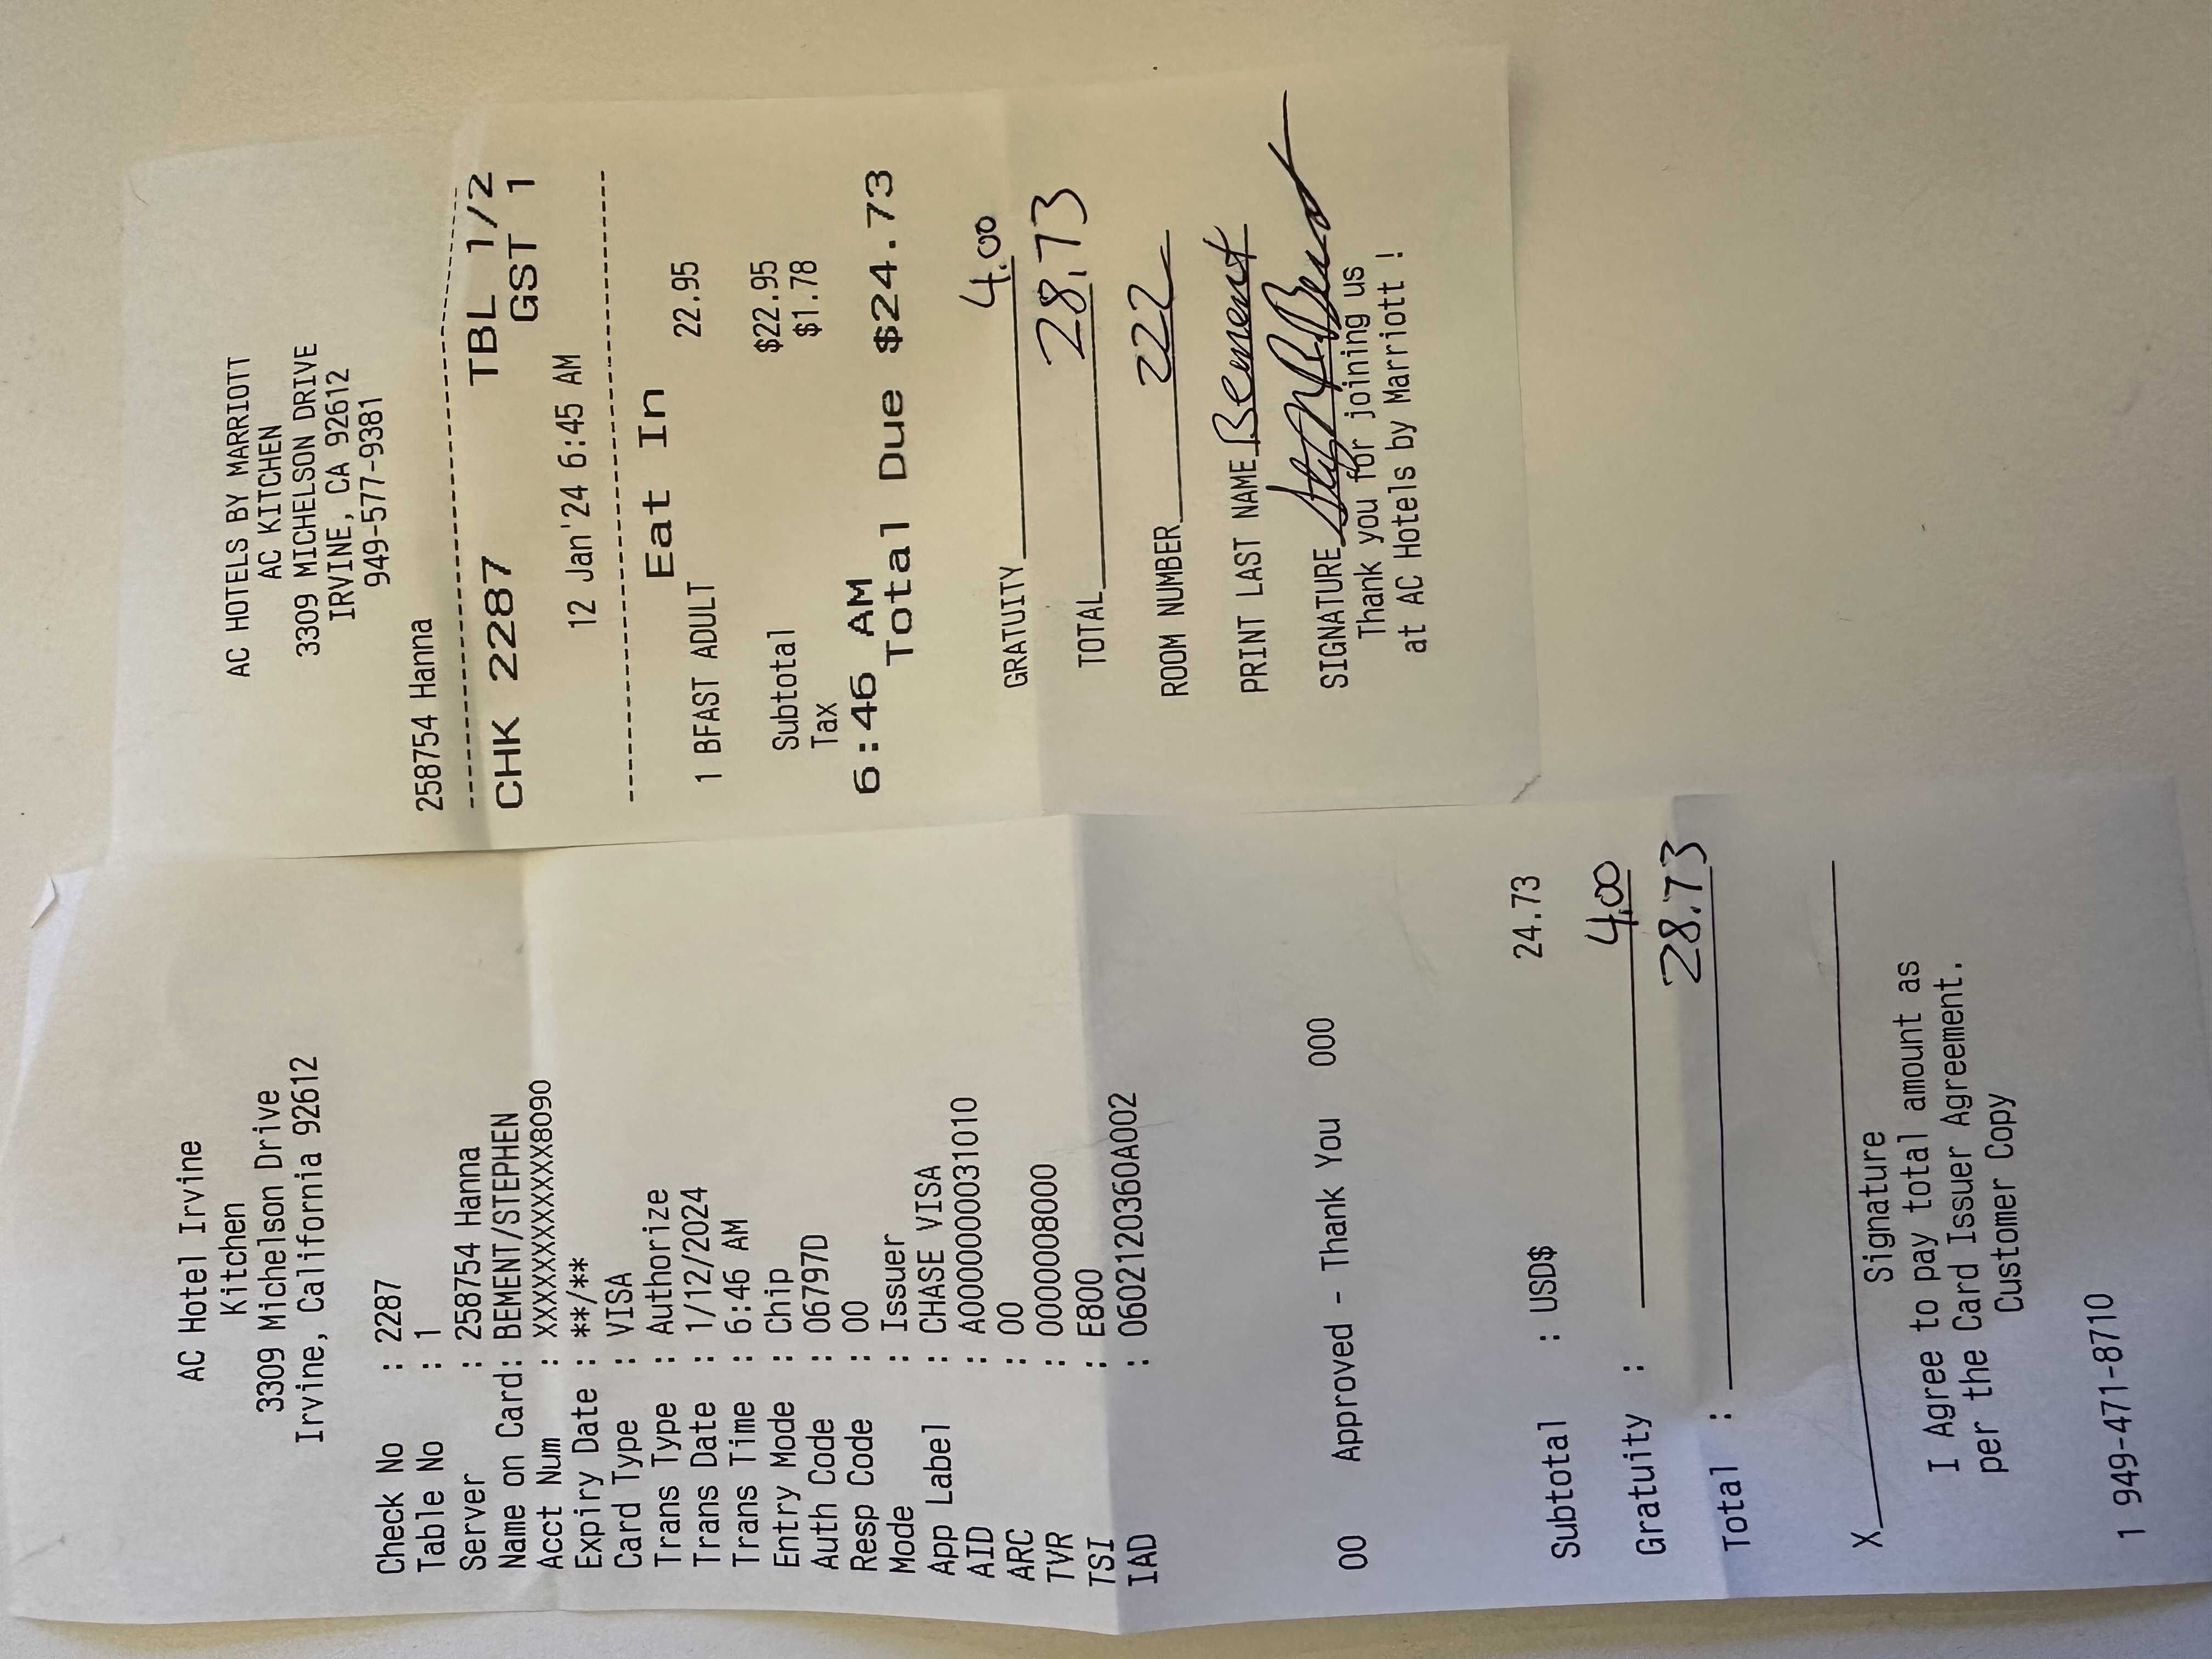 AC Hotel Irvine
Kitchen
3309 Michelson Drive
Irvine, California 92612
Check No : 2287
Table No : 1
Server : 258754 Hanna
Name on Card: BEMENT/STEPHEN
Acct Num : XXXXXXXXXXXX8090
Expiry Date : **/**
Card Type : VISA
Trans Type : Authorize
Trans Date : 1/12/2024
Trans Time : 6:46 AM
Entry Mode : Chip
Auth Code : 06797D
Resp Code : 00
Mode : Issuer
App Label : CHASE VISA
AID : A0000000031010
ARC : 00
TVR : 0000008000
TSI : E800
IAD : 0602120360A002
00 Approved - Thank You 000
Subtotal : USD$ 24.73
Gratuity : 4.00
Total : 28.73
X
Signature
I Agree to pay total amount as
per the Card Issuer Agreement.
Customer Copy
1 949-471-8710
AC HOTELS BY MARRIOTT
AC KITCHEN
3309 MICHELSON DRIVE
IRVINE, CA 92612
949-577-9381
258754 Hanna
CHK 2287 TBL 1/2
GST 1
12 Jan'24 6:45 AM
Eat In
1 BFAST ADULT 22.95
Subtotal $22.95
Tax $1.78
6:46 AM
Total Due $24.73
GRATUITY 4.00
TOTAL 28.73
ROOM NUMBER 222
PRINT LAST NAME Bement
SIGNATURE
Thank you for joining us
at AC Hotels by Marriott !